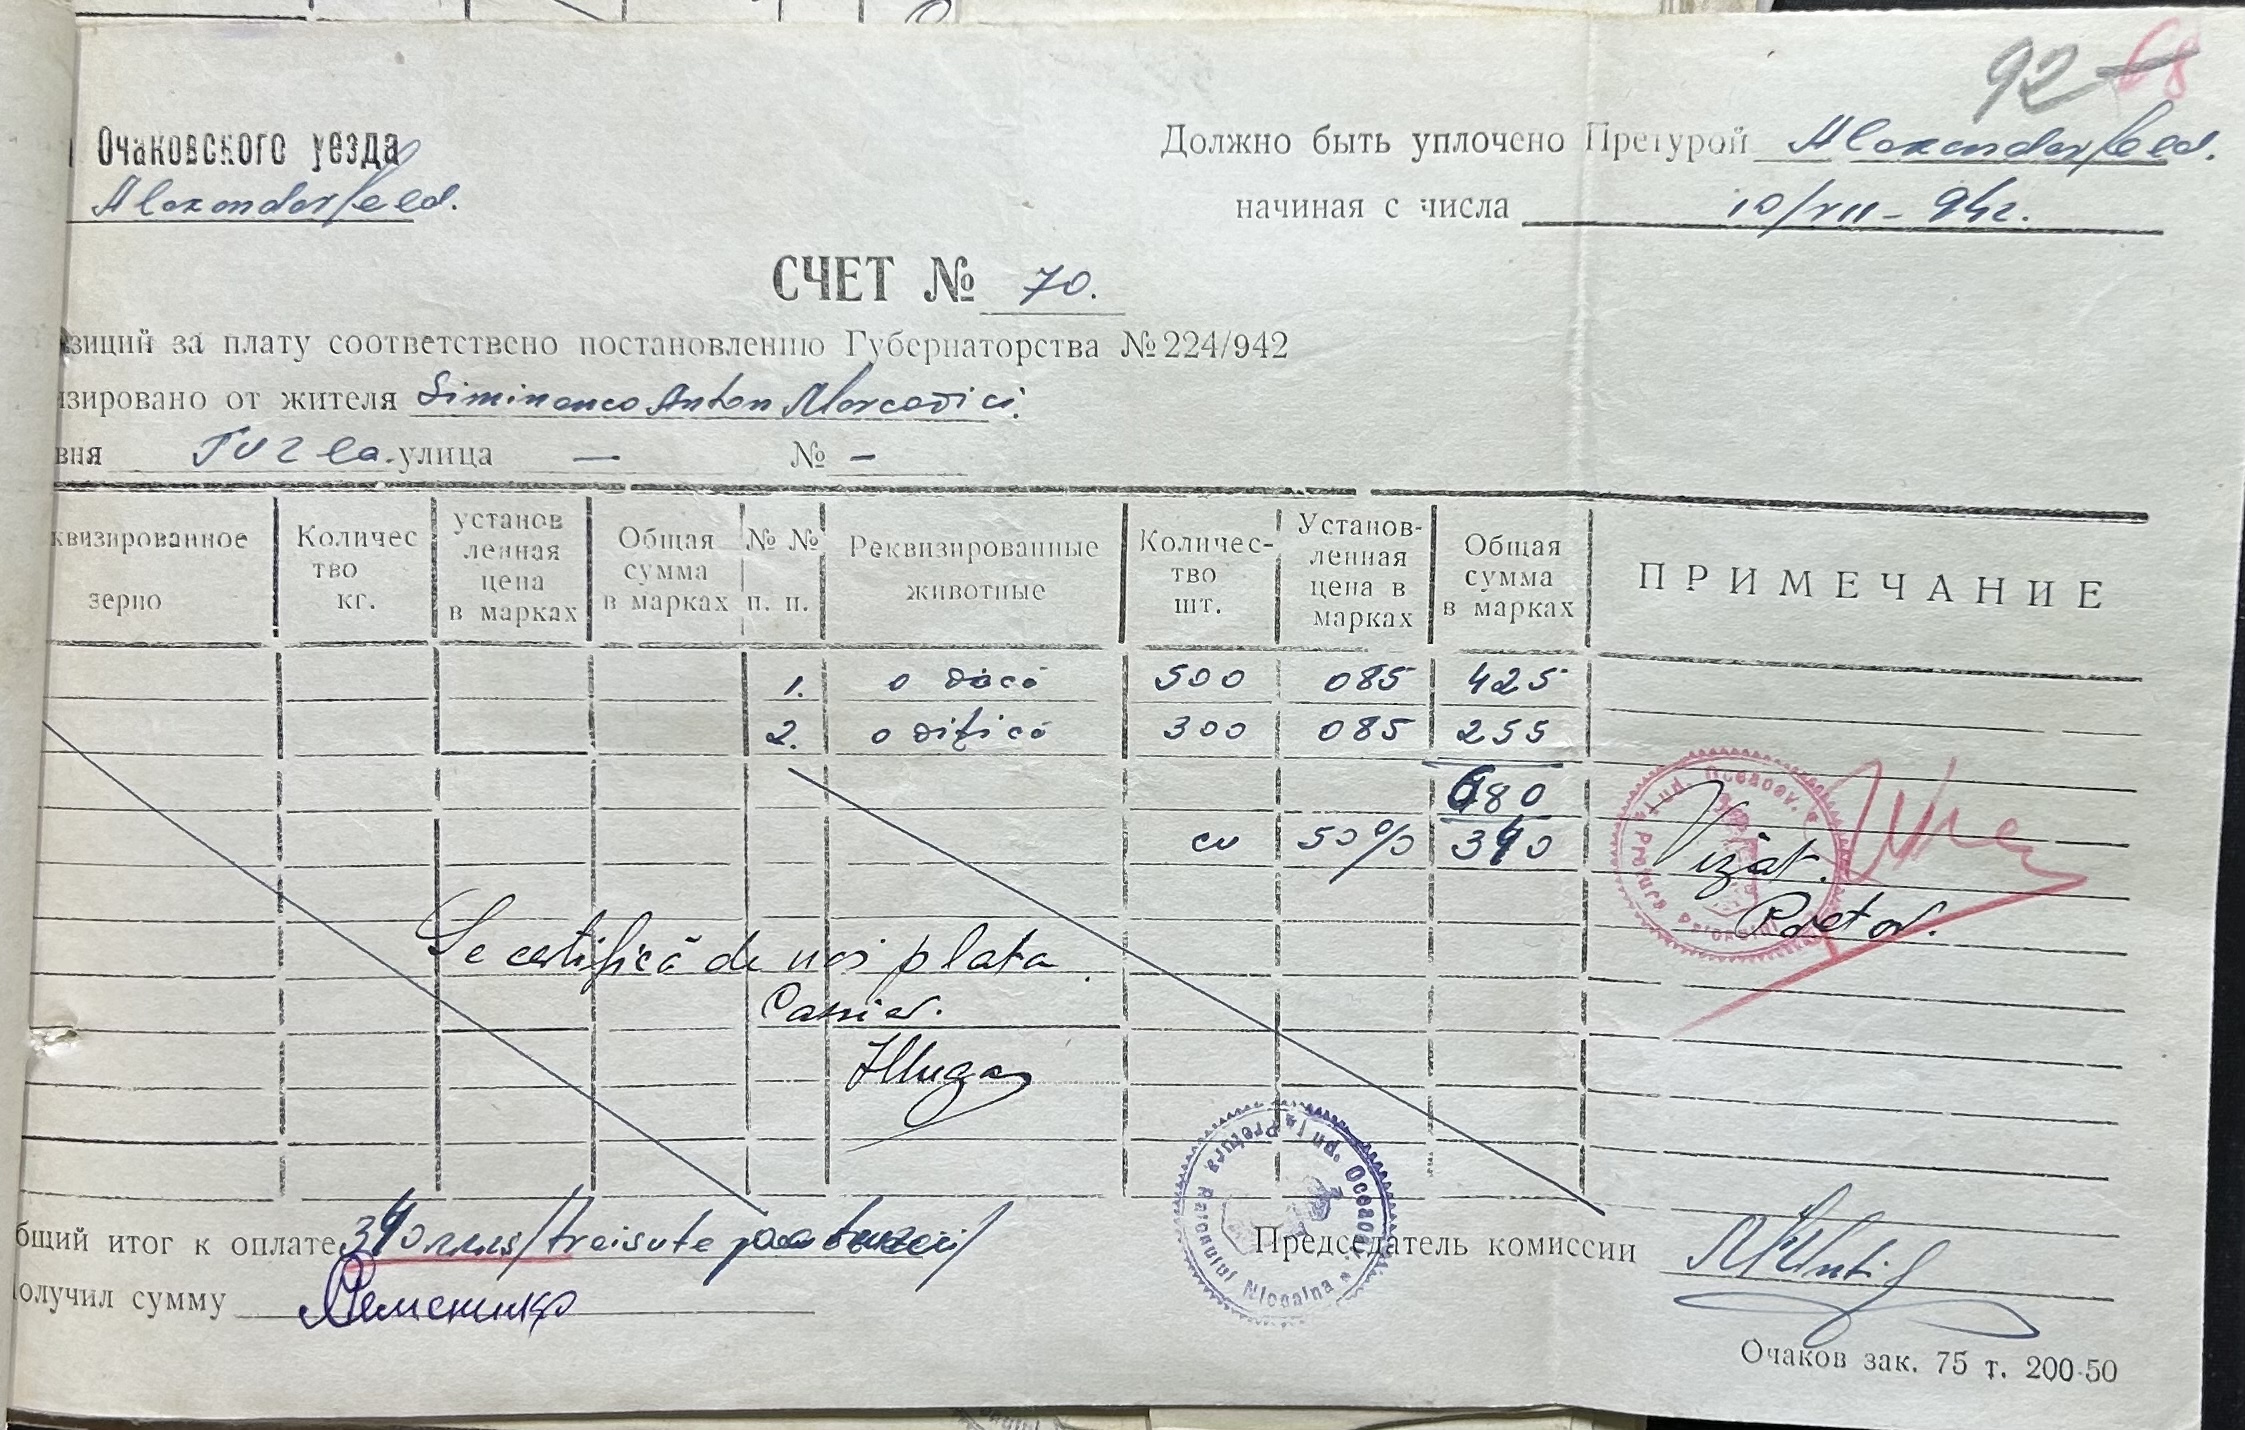 92 68
Очаковского уезда
Alexanderfeld.
Должно быть уплочено Претурой Alexanderfeld.
начиная с числа 10/VII-942.
СЧЕТ № 70.
зиций за плату соответствено постановлению Губернаторства №224/942
изировано от жителя Siminenco Anton
вня Tuzla. улица — № —
квизированное зерно
Количес тво кг.
установ ленная цена в марках
Общая сумма в марках
№ № п. п.
Реквизированные животные
Количес- тво шт.
Установ- ленная цена в марках
Общая сумма в марках
ПРИМЕЧАНИЕ
1. o vacă 500 085 425
2. o vițică 300 085 255
680
cu 50% 340
Vizat.
Pretor.
Se certifică de noi plata
Casier.
бщий итог к оплате 340 rms /treisute patruzeci/
Председатель комиссии
олучил сумму
Очаков зак. 75 т. 200-50